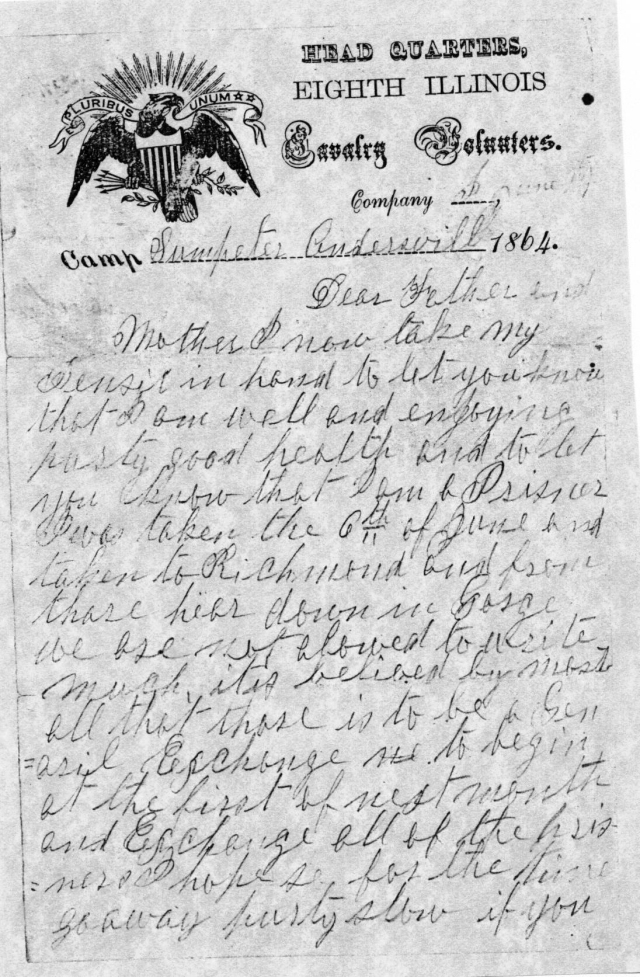 E PLURIBUS UNUM
HEAD QUARTERS,
EIGHTH ILLINOIS
Cavalry Volunters.
Company
Camp Sumpeter Andersvill 1864.
Dear Father and
Mother I now take my
Pensil in hand to let you know
that I am well and enjoying
party good health and to let
you know that I am a Prisner
I was taken the 6th of June and
taken to Richmond and from
thare hear down in Gorge
we are not alowed to write
much, it is belived by most
all that thare is to be a Gen
=aril Exchange to begin
at the first of next month
and Exchange all of the pris-
=ners I hope so for the time
go away purty slow if you